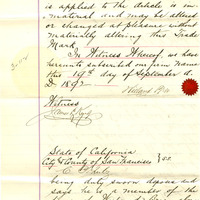 is applied to the article is im-
material and may be altered
or changed at pleasure without
materially altering this Trade
Mark.
In Witness Whereof, we have
hereunto subscribed our firm name
this 19th day of September A.
D. 1892
Witness
State of California
City & County of San Francisco } SS.
being duly sworn deposes and
says he is a member of the